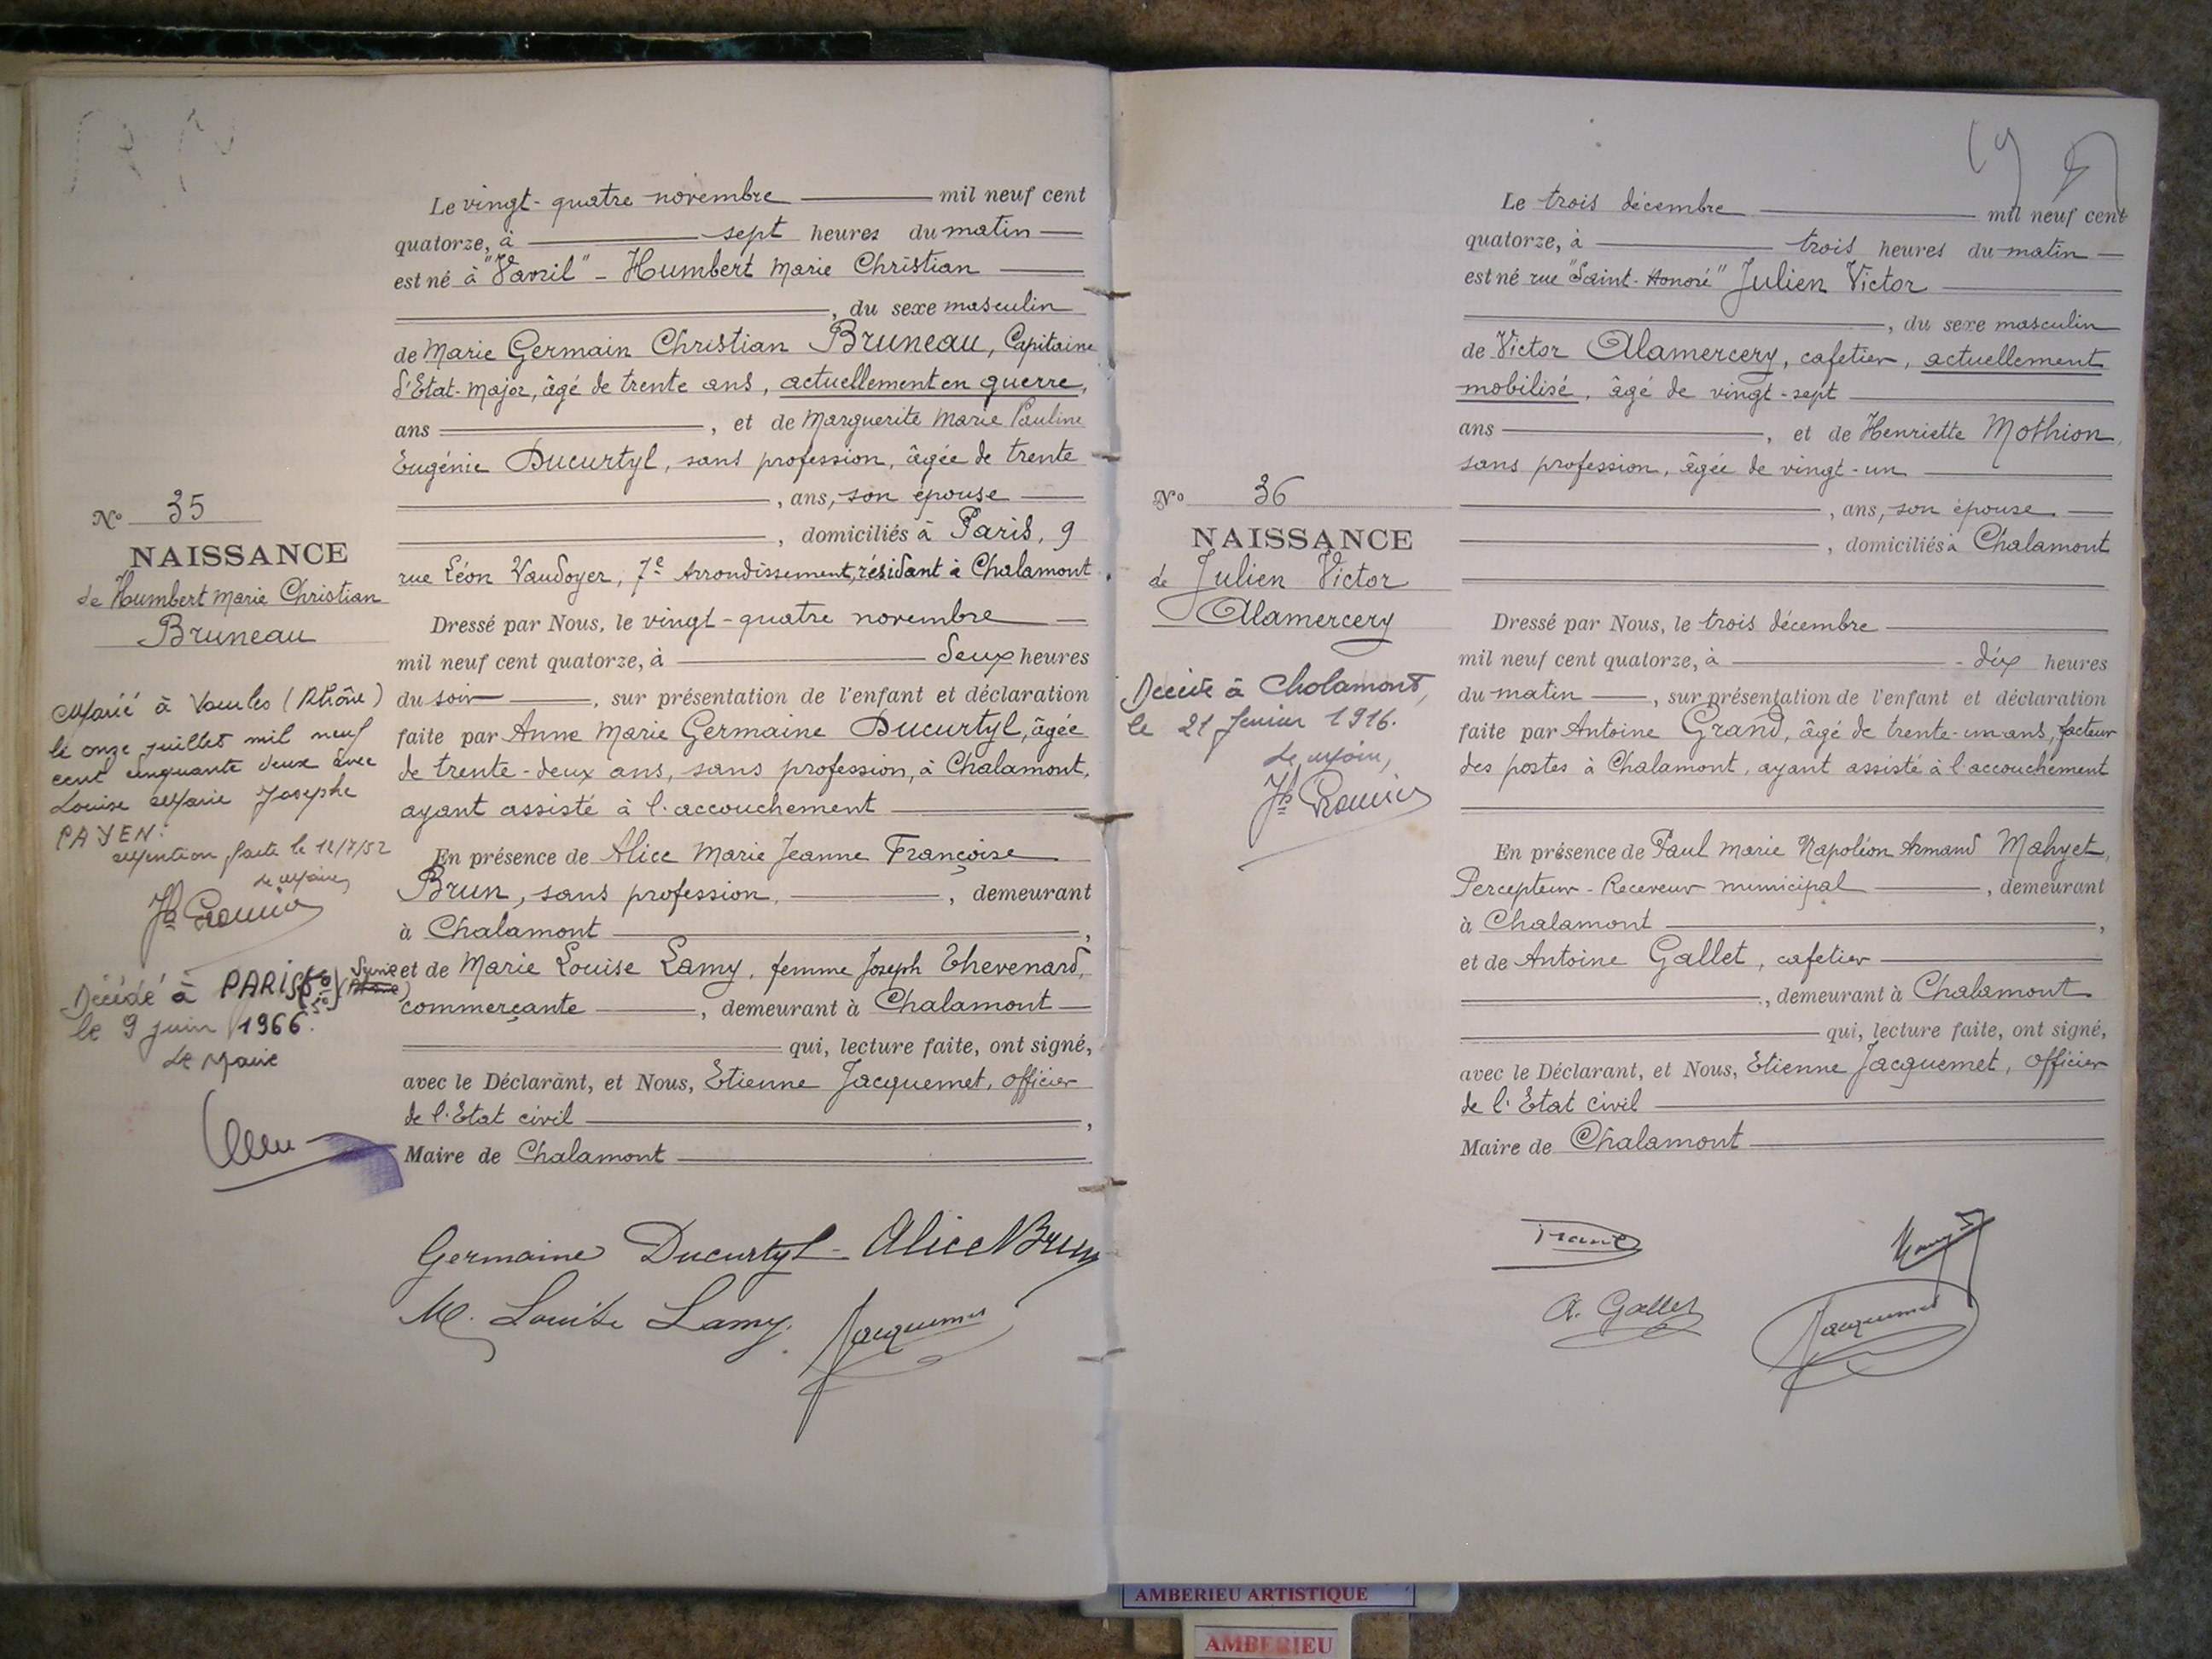 Le vingt-quatre novembre mil neuf cent
quatorze, à sept heures du matin
est né à "Vavril" - Humbert Marie Christian
, du sexe masculin
de Marie Germain Christian Bruneau, Capitaine
d'Etat-Major, âgé de trente ans, actuellement en guerre,
ans , et de Marguerite Marie Pauline
Eugénie Ducurtyl, sans profession, âgée de trente
, ans, son épouse
, domiciliés à Paris, 9
rue Léon Vaudoyer, 7e Arrondissement, résidant à Chalamont.
Dressé par Nous, le vingt-quatre novembre
mil neuf cent quatorze, à deux heures
du soir , sur présentation de l'enfant et déclaration
faite par Anne Marie Germaine Ducurtyl, âgée
de trente-deux ans, sans profession, à Chalamont,
ayant assisté à l'accouchement
En présence de Alice Marie Jeanne Françoise
Brun, sans profession, , demeurant
à Chalamont ,
et de Marie Louise Lamy, femme Joseph Thevenard,
commerçante , demeurant à Chalamont
qui, lecture faite, ont signé,
avec le Déclarant, et Nous, Etienne Jacquemet, officier
de l'Etat civil ,
Maire de Chalamont
Germaine Ducurtyl - Alice Brun
M. Louise Lamy. Jacquemet
No 35
NAISSANCE
de Humbert Marie Christian
Bruneau
Marié à Vaulx (Rhône)
le onze juillet mil neuf
cent cinquante deux avec
Louise Marie Josephe
PAYEN.
Mention faite le 12/7/52
Le Maire,
Décédé à PARIS
le 9 juin 1966.
Le Maire
Le trois décembre mil neuf cent
quatorze, à trois heures du matin
est né rue "Saint-Honoré" Julien Victor
, du sexe masculin
de Victor Alamercery, cafetier, actuellement
mobilisé, âgé de vingt-sept
ans , et de Henriette Mothion,
sans profession, âgée de vingt-un
, ans, son épouse
, domiciliés à Chalamont
Dressé par Nous, le trois décembre
mil neuf cent quatorze, à dix heures
du matin , sur présentation de l'enfant et déclaration
faite par Antoine Grand, âgé de trente-un ans, facteur
des postes à Chalamont, ayant assisté à l'accouchement
En présence de Paul Marie Napoléon Armand Mahyet,
Percepteur-Receveur municipal , demeurant
à Chalamont ,
et de Antoine Gallet, cafetier
, demeurant à Chalamont
qui, lecture faite, ont signé,
avec le Déclarant, et Nous, Etienne Jacquemet, officier
de l'Etat civil
Maire de Chalamont
A. Gallet
Jacquemet
No 36
NAISSANCE
de Julien Victor
Alamercery
Décédé à Chalamont,
le 21 février 1916.
Le Maire,
AMBERIEU ARTISTIQUE
AMBERIEU